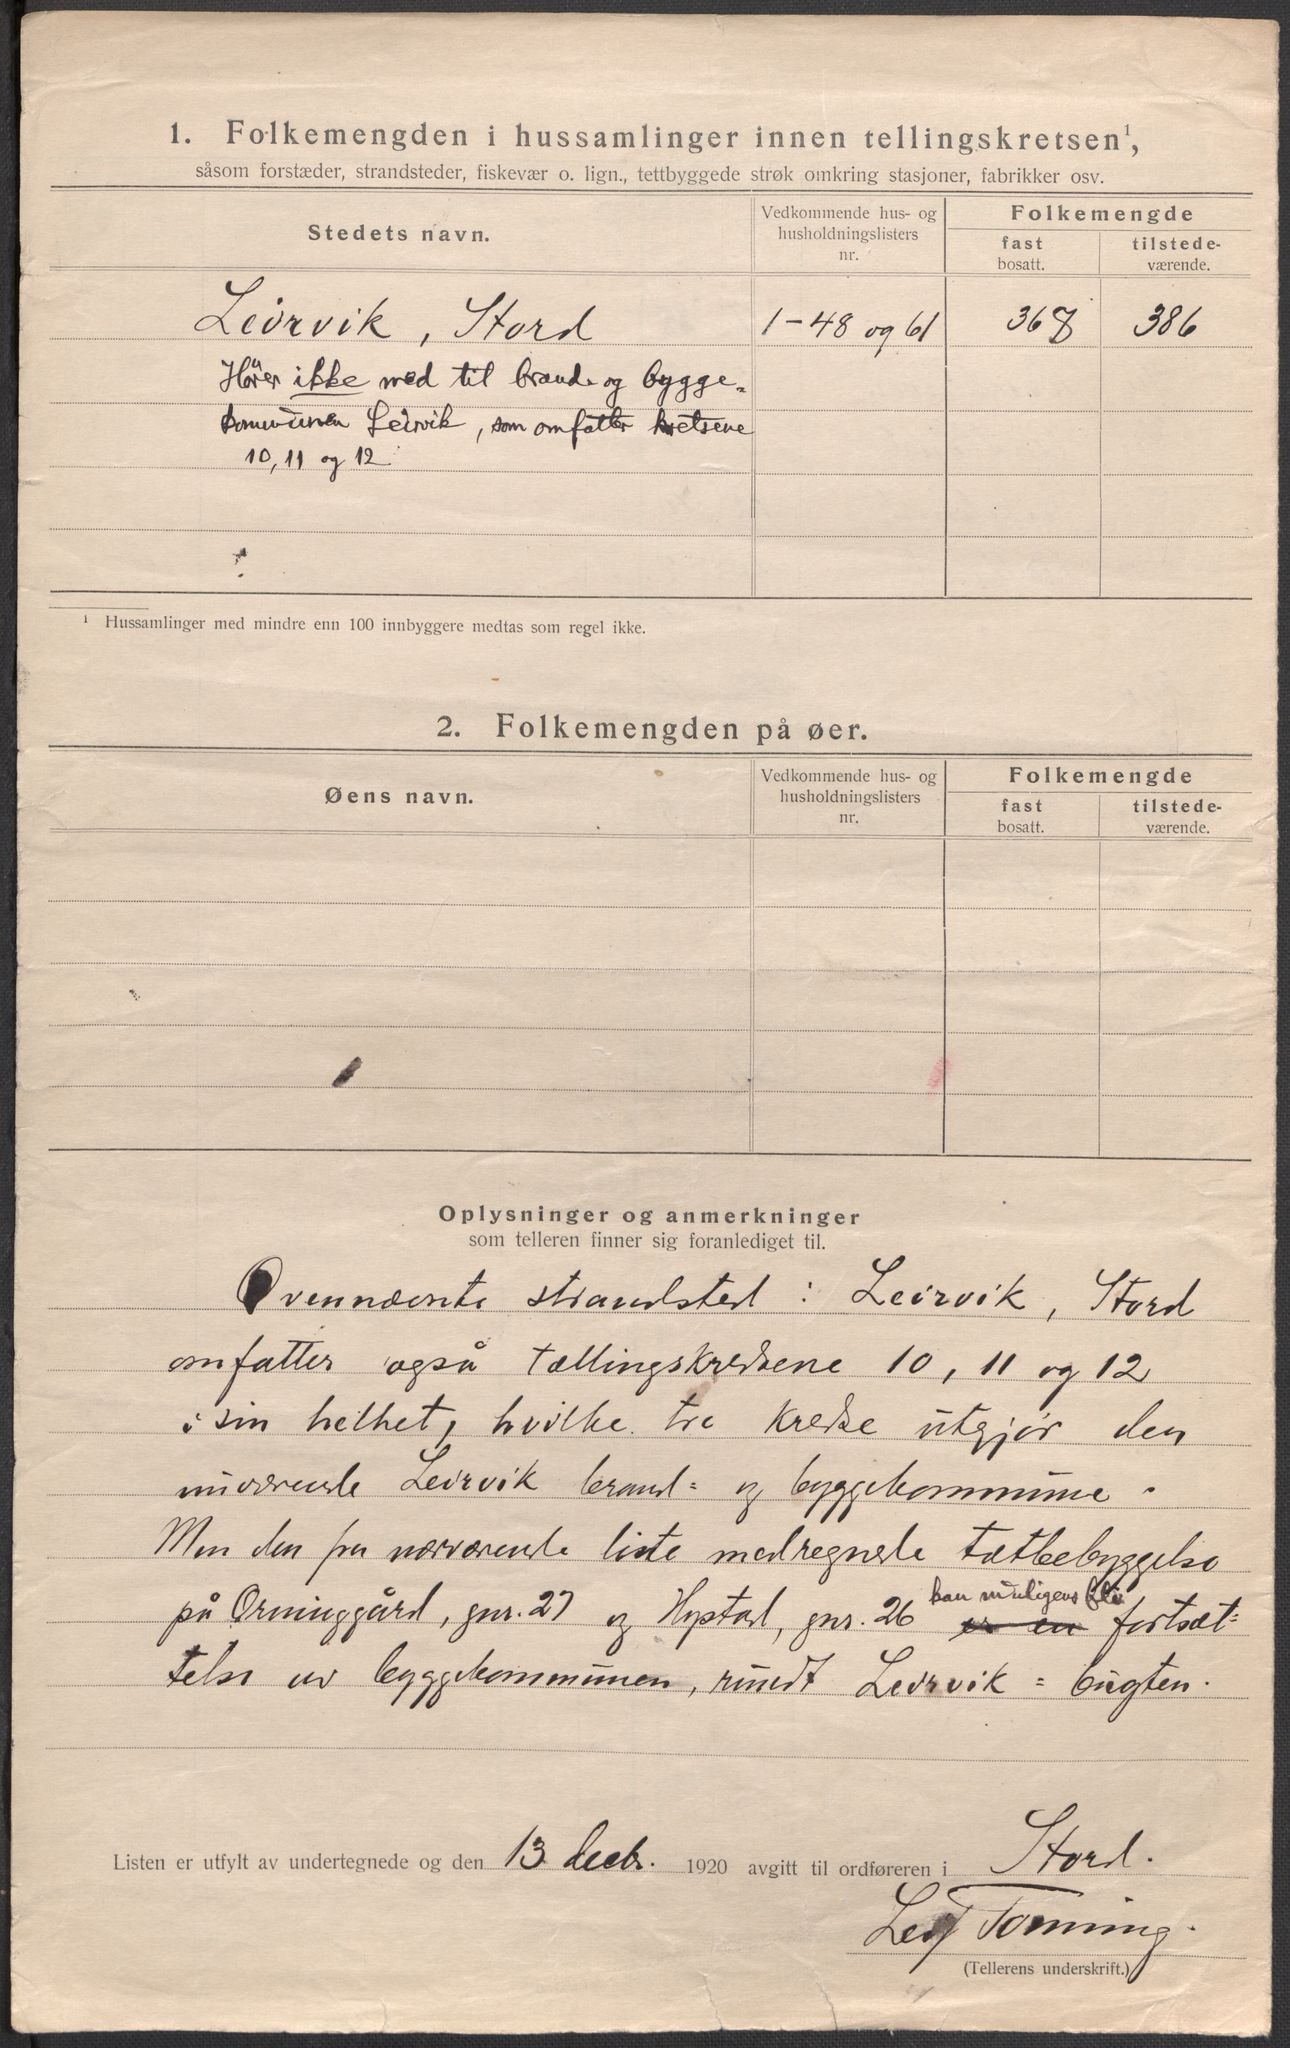 1. Folkemengden i hussamlinger innen tellingskretsen¹,
såsom forstæder, strandsteder, fiskevær o. lign., tettbyggede strøk omkring stasjoner, fabrikker osv.
Stedets navn.
Vedkommende hus- og
husholdningslisters
nr.
Folkemengde
fast
bosatt.
tilstede-
værende.
Leirvik, Stord 1-48 og 61 367 386
Hører ikke med til brand- og bygge-
kommunen Leirvik, som omfatter kretsene
10, 11 og 12
¹ Hussamlinger med mindre enn 100 innbyggere medtas som regel ikke.
2. Folkemengden på øer.
Øens navn.
Vedkommende hus- og
husholdningslisters
nr.
Folkemengde
fast
bosatt.
tilstede-
værende.
Oplysninger og anmerkninger
som telleren finner sig foranlediget til.
Ovennævnte strandsted: Leirvik, Stord
omfatter også tællingskredsene 10, 11 og 12
i sin helhet, hvilke tre kredse utgjør den
nuværende Leirvik brand- og byggekommune.
Men den paa nærværende liste medregnede tætbebyggelse
kan muligens bli
på Orninggård, gnr. 27 og Hystad, gnr. 26 er en fortsæt-
telse av byggekommunen, rundt Leirvik-bugten.
Listen er utfylt av undertegnede og den 13 decbr. 1920 avgitt til ordføreren i Stord.
Leif Tonning.
(Tellerens underskrift.)